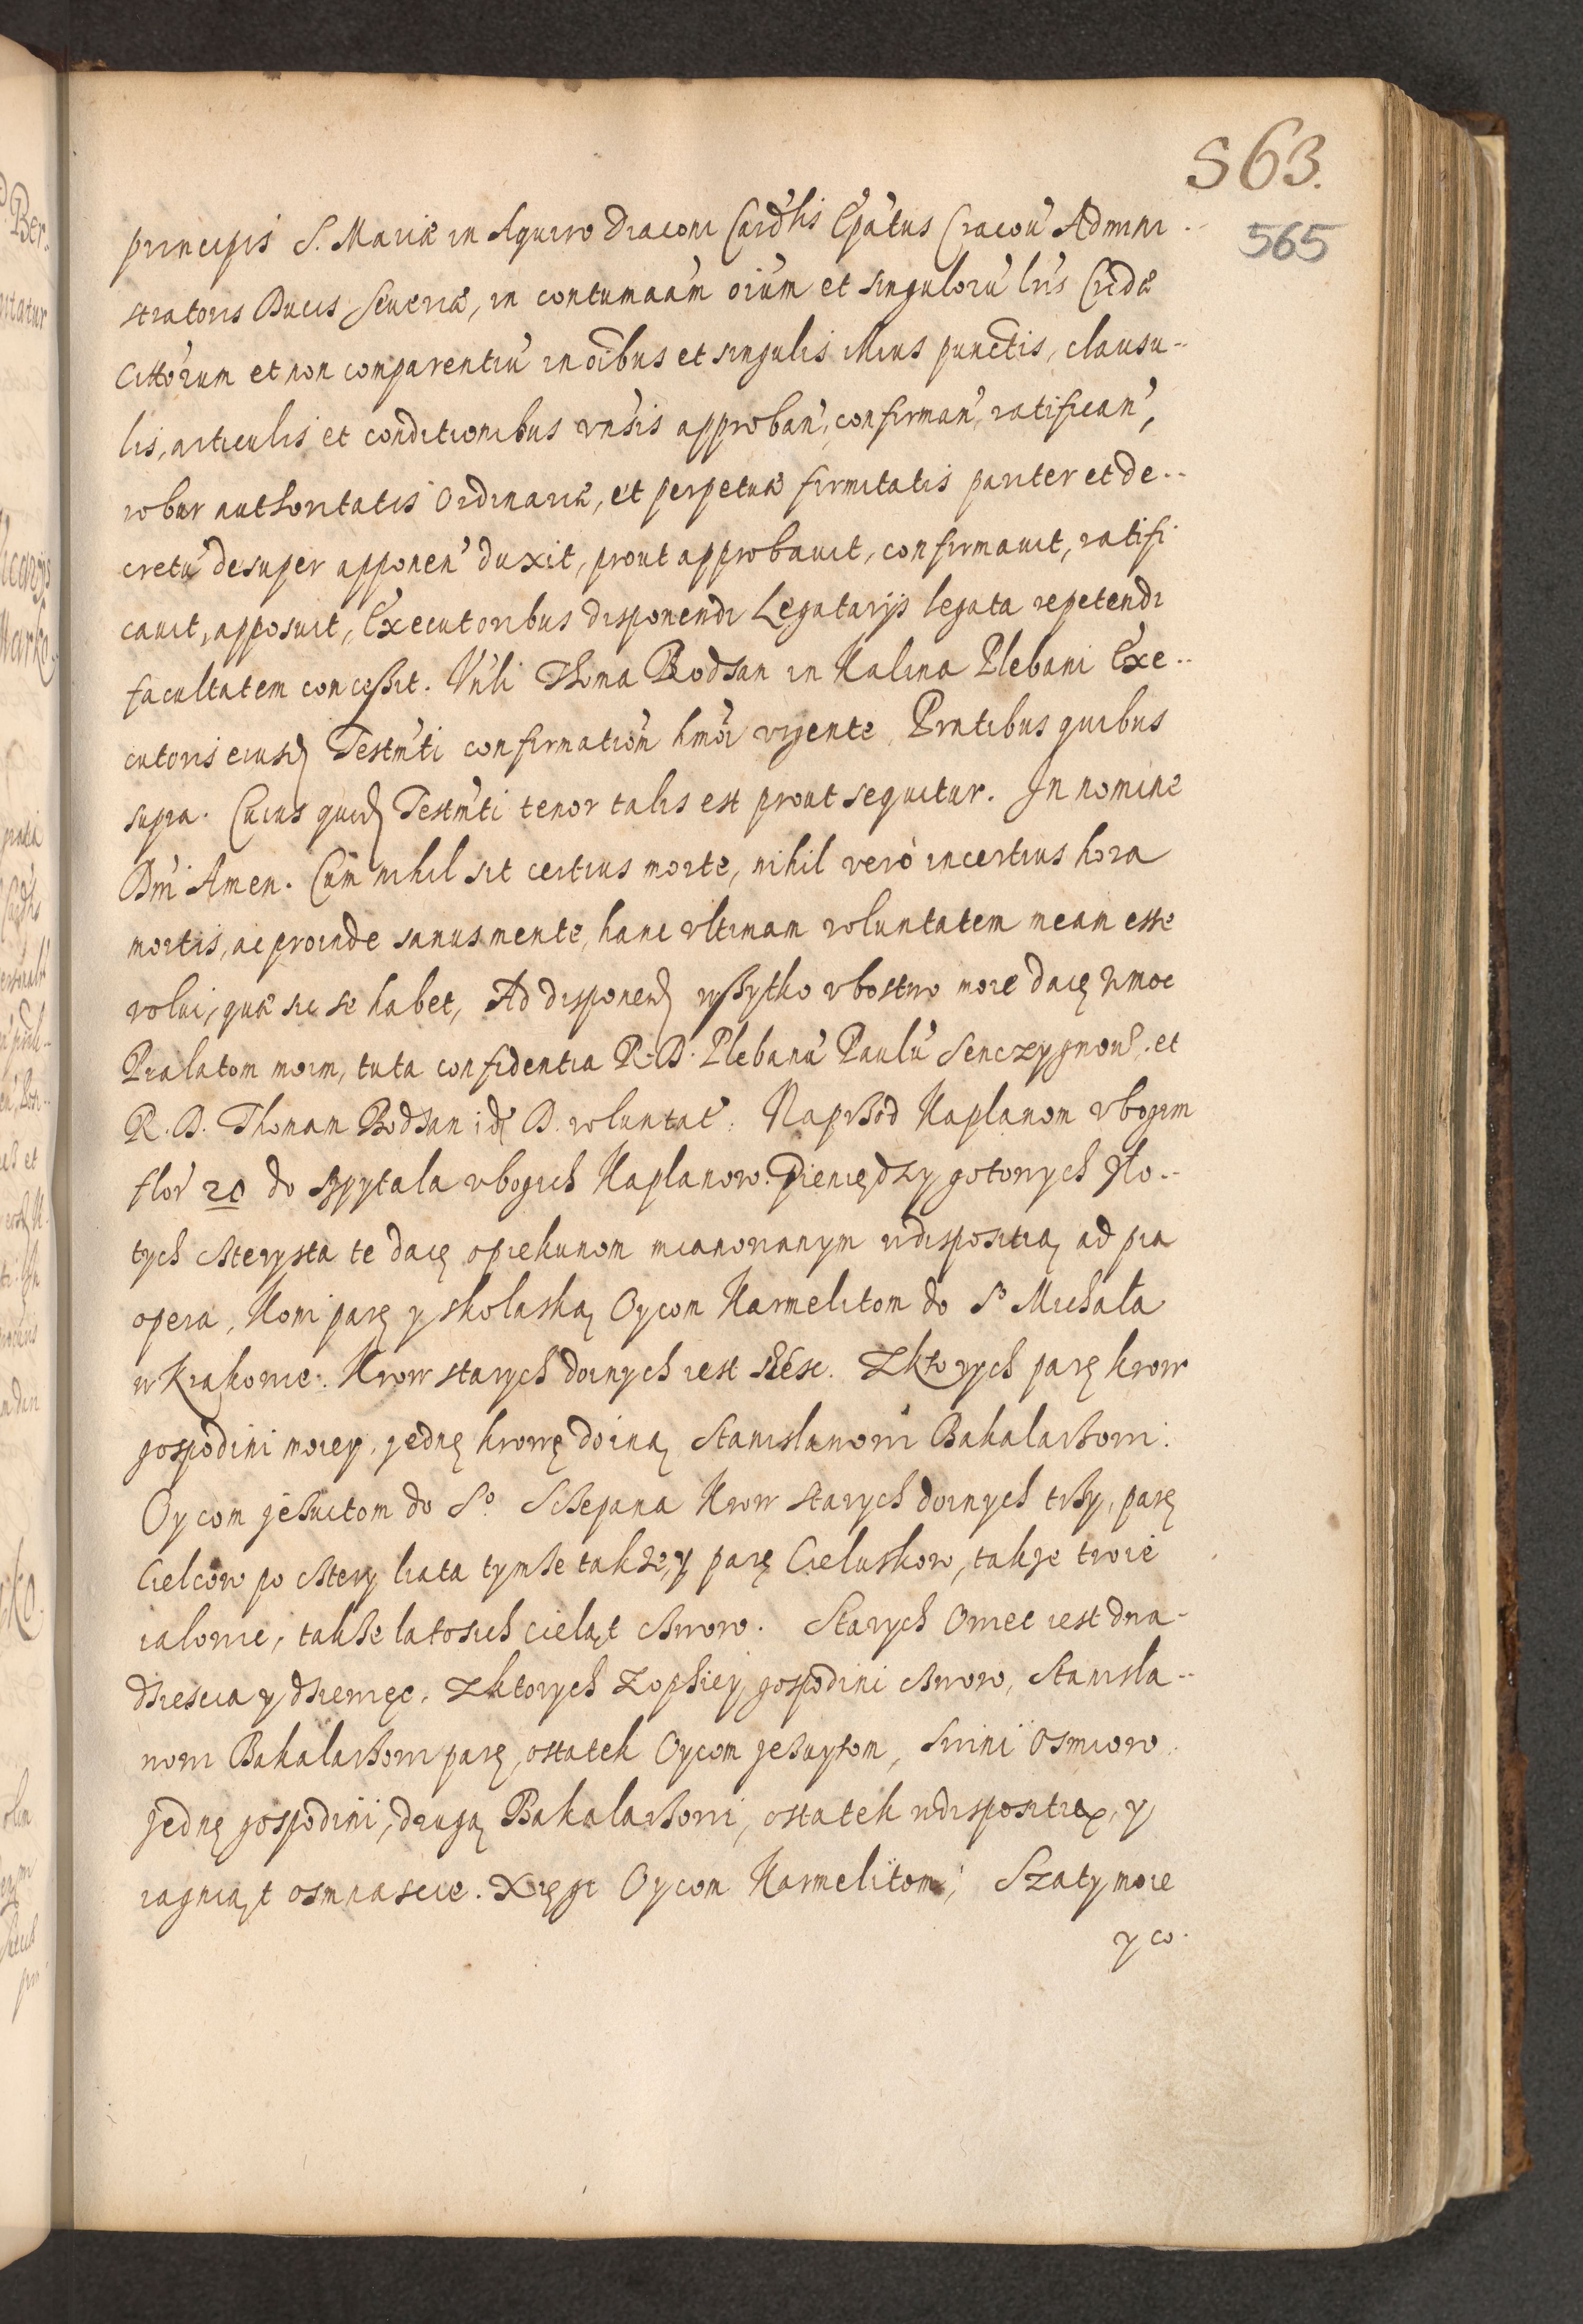 563.
565
principis S. Mariæ in Aquiro Diaconi Card'lis Ep'atus Cracou' Admini-
stratoris Ducis Seueriæ, in contumaa'm oiu'm et singuloru' lr'is Cridæ
citto'rum et non comparentiu' in oi'bus et singulis illius punctis, clausu-
lis, articulis et conditionibus vn'sis approban', confirman', ratifican',
robur authoritatis Ordinariæ, et perpetuæ firmitatis pariter et de-
cretu' desuper apponen' duxit, prout approbauit, confirmauit, ratifi
cauit, apposuit, Executoribus disponendi Legatarijs legata repetendi
facultatem conceßit. Vn'li Thoma Bodsan in Kalina Plebani Exe-
cutoris eiusd Testm'ti confirmation' hmo'i vrgente. Prntibus quibus
supra. Cuius quid Testm'ti tenor talis est prout sequitur. In nomine
Dm'i Amen. Cum nihil sit certius morte, nihil verò incertius hora
mortis, ac proinde sanus mente, hanc vltimam voluntatem meam esse
volui, quæ sic se habet, Ad disponend wßytko vbostwo moie daię w moc
Prælatom moim, tuta confidentia R. D. Plebanu' Paulu' Senczygnow. et
R. D. Thomam Bodsan id D. voluntat'. Naprßod Kaplanom vbogim
flor' 20 do szpytala vbogich Kaplanow. Pieniędzy gotowych zło-
tych cßterysta te daię opiekunom mianowanym w dispositią ad pia
opera, Koni parę y skolaską Oycom Karmelitom do So Michała
w Krakowie. Krow starych doinych iest sßésc. Zktorych parę krow
gospodini moiey, jednę krowę doiną Stanisławowi Bakalarßowi.
Oycom jeßuitom do So. Scßepana Krow starych doinych trßy, parę
Cielcow po cßtery liata tymße takze, y parę Cieluskow, takze troie
ialowic, takße latosich cieląt cßworo. Starych Owiec iest dwa-
dßiescia y dßiewięc. Zktorych Zophiey gospodini cßworo, Stanisła-
wowi Bakalarßowi parę, ostatek Oycom jeßuytom, Swini Osmioro
jednę gospodini, drugą Bakalarßowi, ostatek w dispositią, y
iagniąt osmnascie. Xięgi Oycom Karmelitom; Szaty moie
y co.